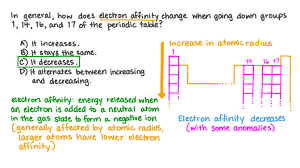 In general, how does electron affinity change when going down groups
1, 14, 16, and 17 of the periodic table?
A) It increases.
B) It stays the same.
C) It decreases.
D) It alternates between increasing
and decreasing.
electron affinity: energy released when
an electron is added to a neutral atom
in the gas state to form a negative ion
(generally affected by atomic radius,
larger atoms have lower electron
affinity)
Increase in atomic radius
1
14
16 17
Electron affinity decreases
(with some anomalies)